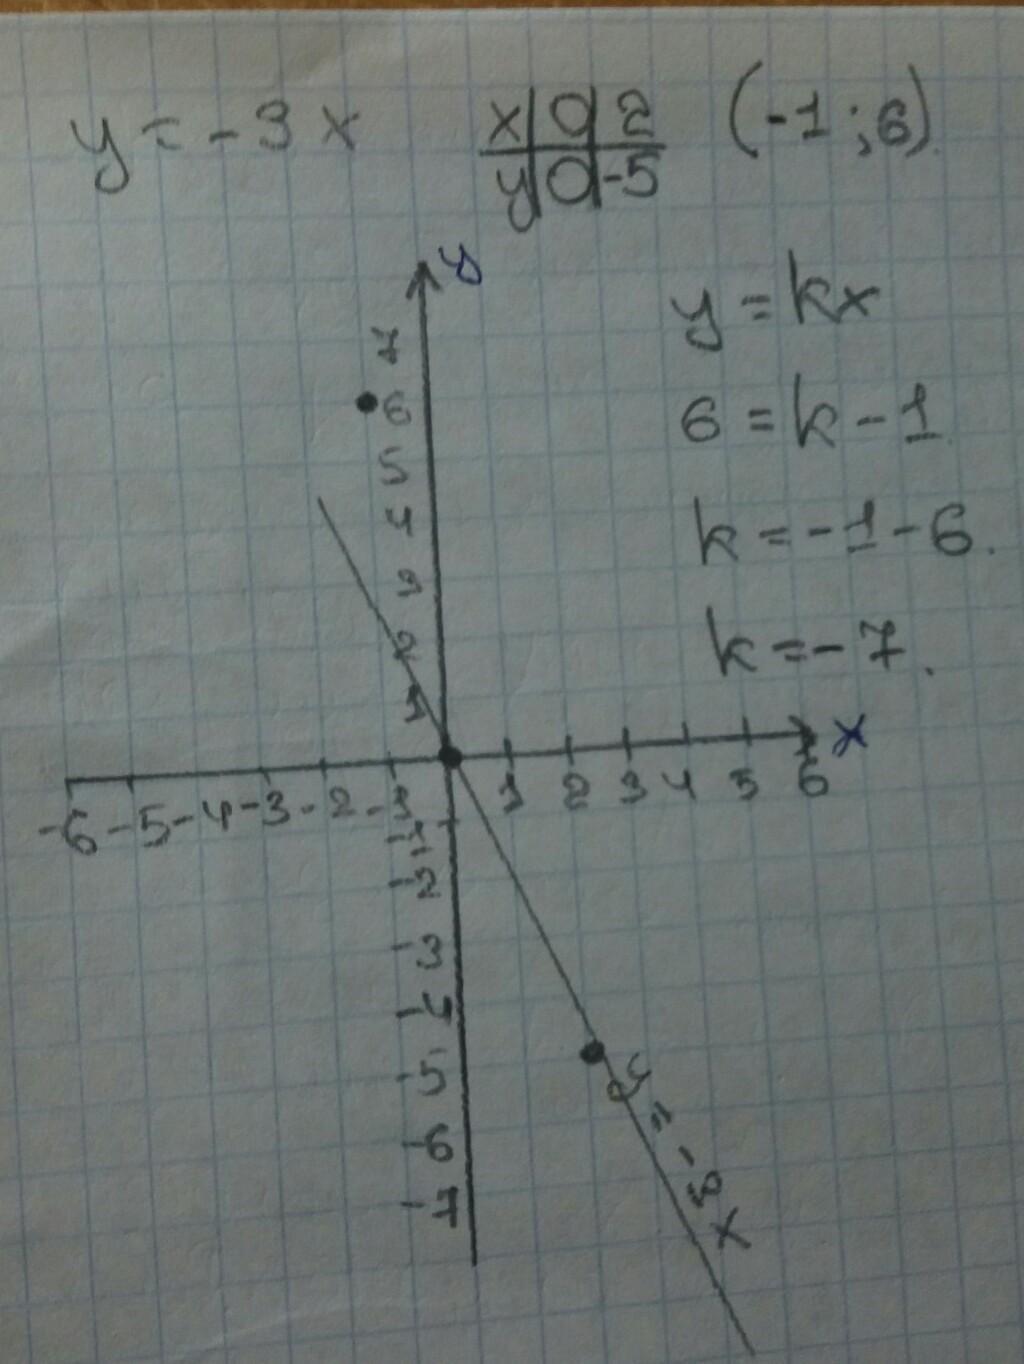 y = -3x
x 0 2
y 0 -5
(-1;6).
y
7
6
5
4
3
2
1
y = kx
6 = k - 1
k = -1 - 6.
k = -7.
x
-6 -5 -4 -3 -2 -1 1 2 3 4 5 6
-1
-2
-3
-4
-5
-6
-7
y = -3x